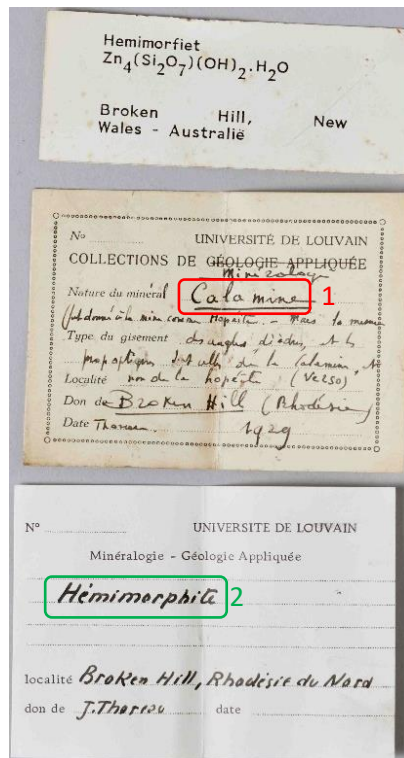 Hemimorfiet
Zn4(Si2O7)(OH)2.H2O
Broken Hill, New
Wales - Australië
No UNIVERSITÉ DE LOUVAIN
COLLECTIONS DE GÉOLOGIE APPLIQUÉE
Minéralogy
Nature du minéral Calamine 1
à la mine comme Hopéite. - Mais la mesure
Type du gisement des angles dièdres et les
prop optiques sont celles de la Calamine, et
Localité non de la hopéite (Verso)
Don de Broken Hill (Rhodésie)
Date Thoreau. 1929
N° UNIVERSITE DE LOUVAIN
Minéralogie - Géologie Appliquée
Hémimorphite 2
localité Broken Hill, Rhodésie du Nord
don de J. Thoreau date